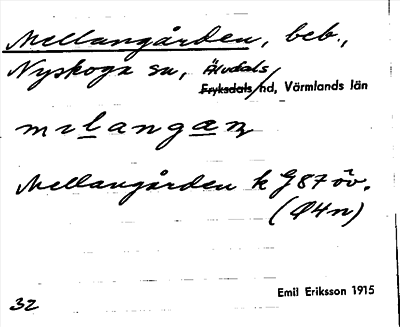 Mellangården, beb.,
Nyskoga sn, Älvdals
Fryksdals/hd, Värmlands län
Mellangården k G 87 öv.
(04n)
32
Emil Eriksson 1915